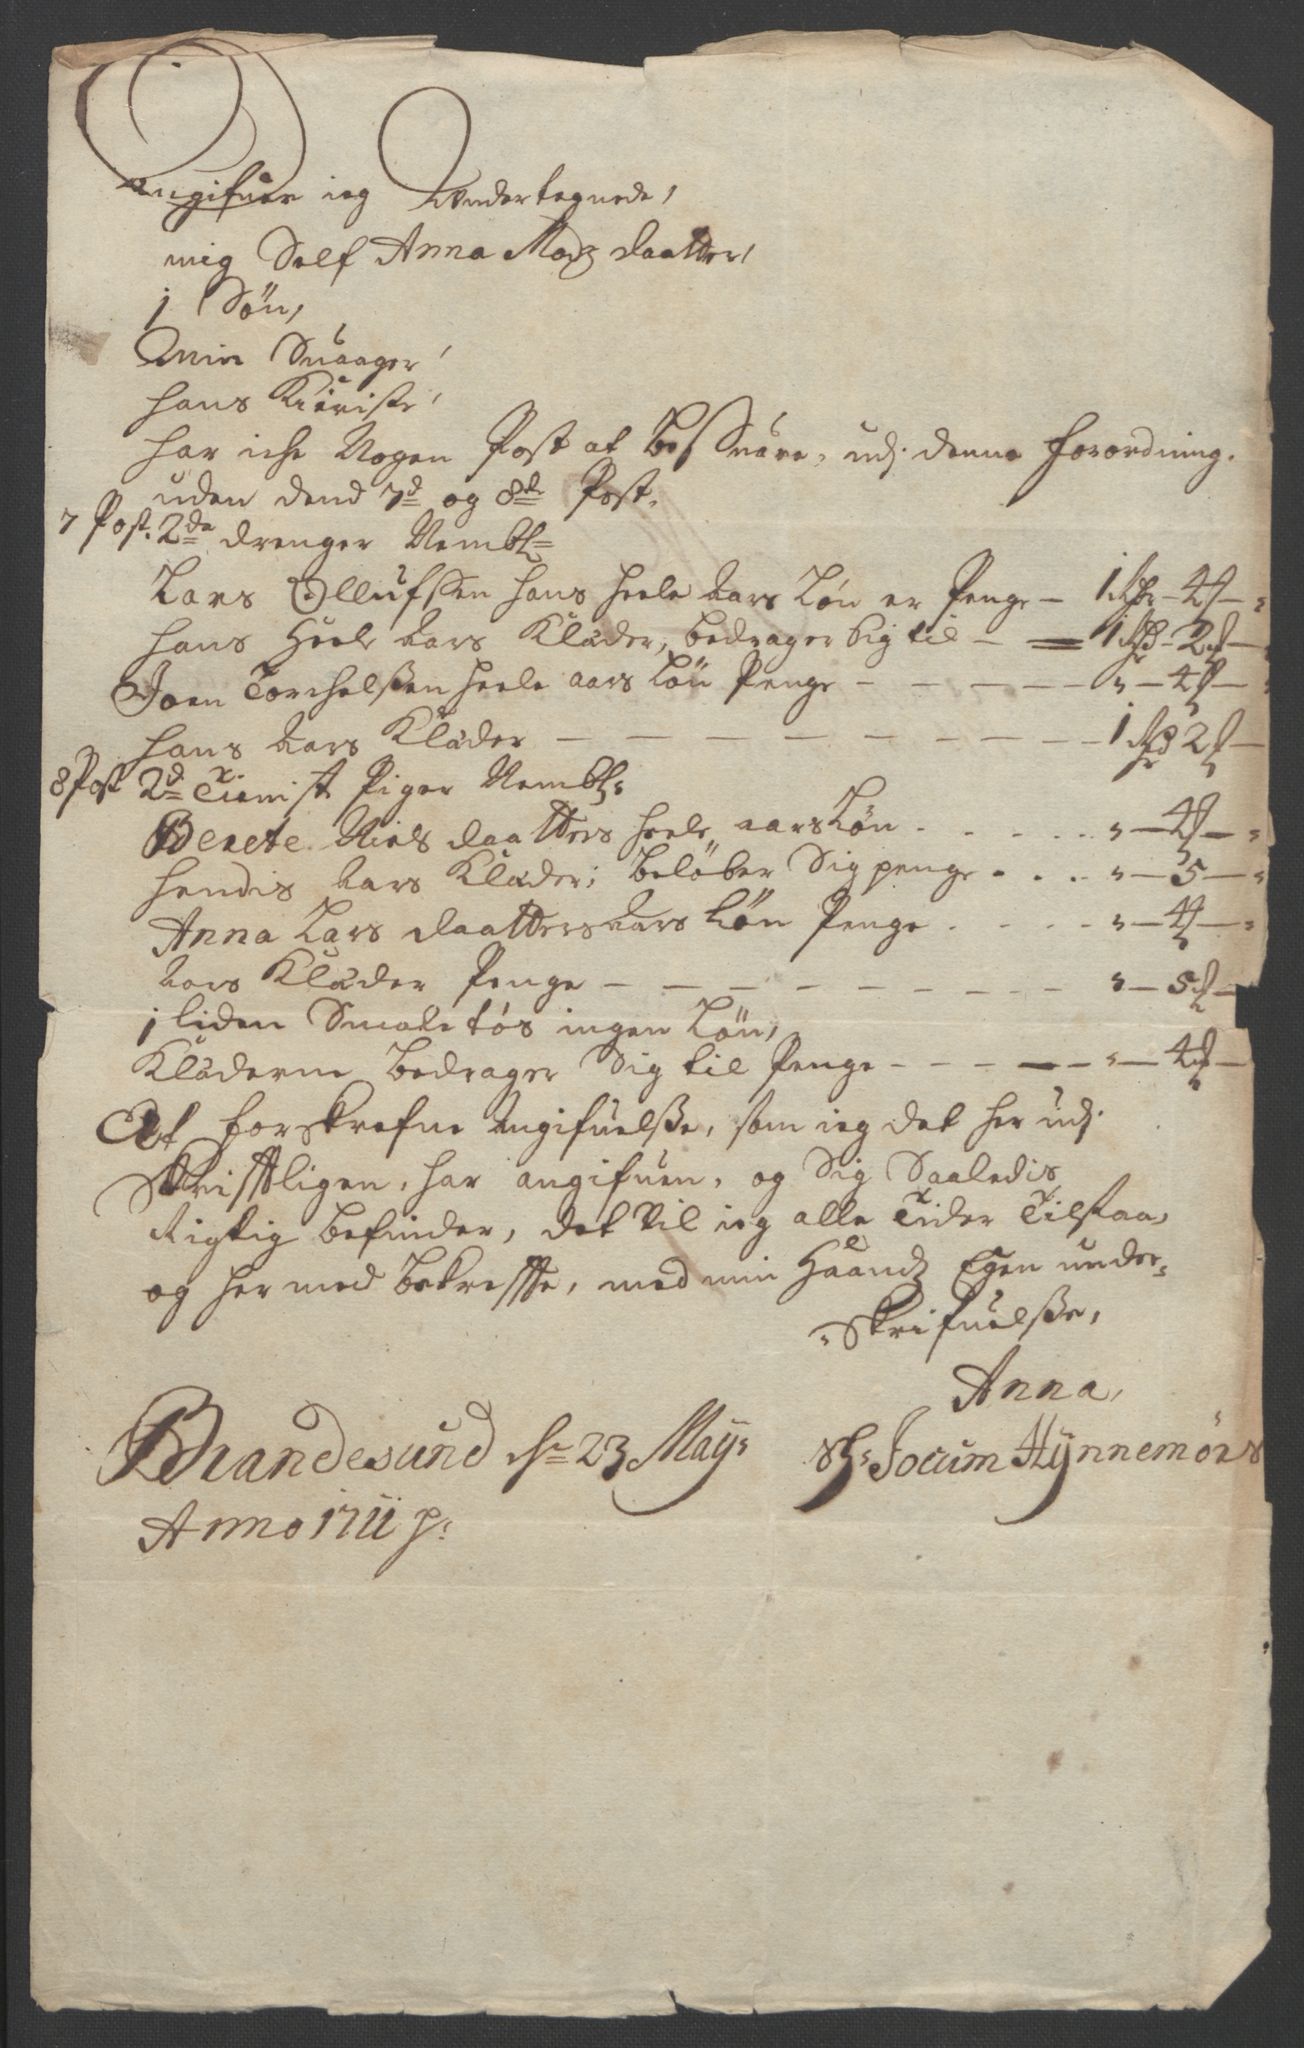 Angifuer ieg Undertegnede,
mig Self Anna Madz daatter,
1 Søn,
Min Suaager,
hans Kiæriste,
har iche Nogen Post at Besvare, udj denne forordning.
uden dend 7d og 8de Post.
7 Post. 2de drenger Nembl:
Lars Ollufsen hans heele aars Løn er Penge — 1 Rdr — 4 ʒ —
hans Heele aars Klæder, bedrager Sig til — 1 Rdr — 2 ʒ —
Joen Torchelßen heele aars Løn Penge — — — " — 4 ʒ —
hans aars Klæder — — — 1 Rdr 2 ʒ —
8 Post 2de Tienist Piger Nembl:
Berete Niels daatters heele aars Løn . . . . " — 4 ʒ —
hendis aars Klæder, beløber Sig penge . . . " — 5 —
Anna Lars daatters aars Løn Penge . . . . " — 4 ʒ —
aars Klæder Penge — — — " — 5 ʒ —
1 liden Smale tøs ingen Løn,
Klæderne bedrager Sig til Penge — — — " — 4 ʒ —
At forskrefne Angifuelße, som ieg det her udj
Skrifftligen, har angifuen, og Sig Saaledis
Rigtig befinder, det Vil ieg alle Tider Tilstaa,
og her med bekreffte, med min Haandz Egen under-
Skrifuelße,
Anna,
Brandesund d: 23 Maij: Sl: Jocum Hynnemörs
Anno 1711 p: